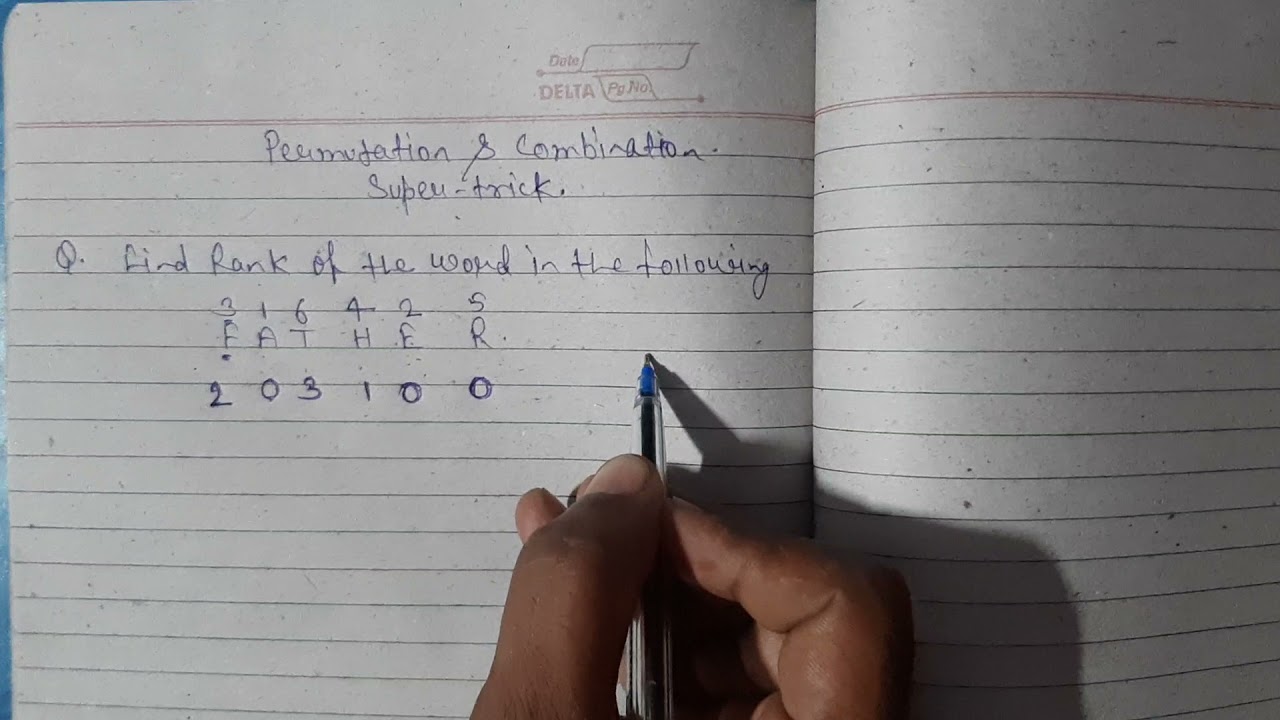 Date
DELTA Pg.No
Permutation & Combination.
Super-trick.
Q. Find Rank of the word in the following
3 1 6 4 2 5
F A T H E R.
2 0 3 1 0 0